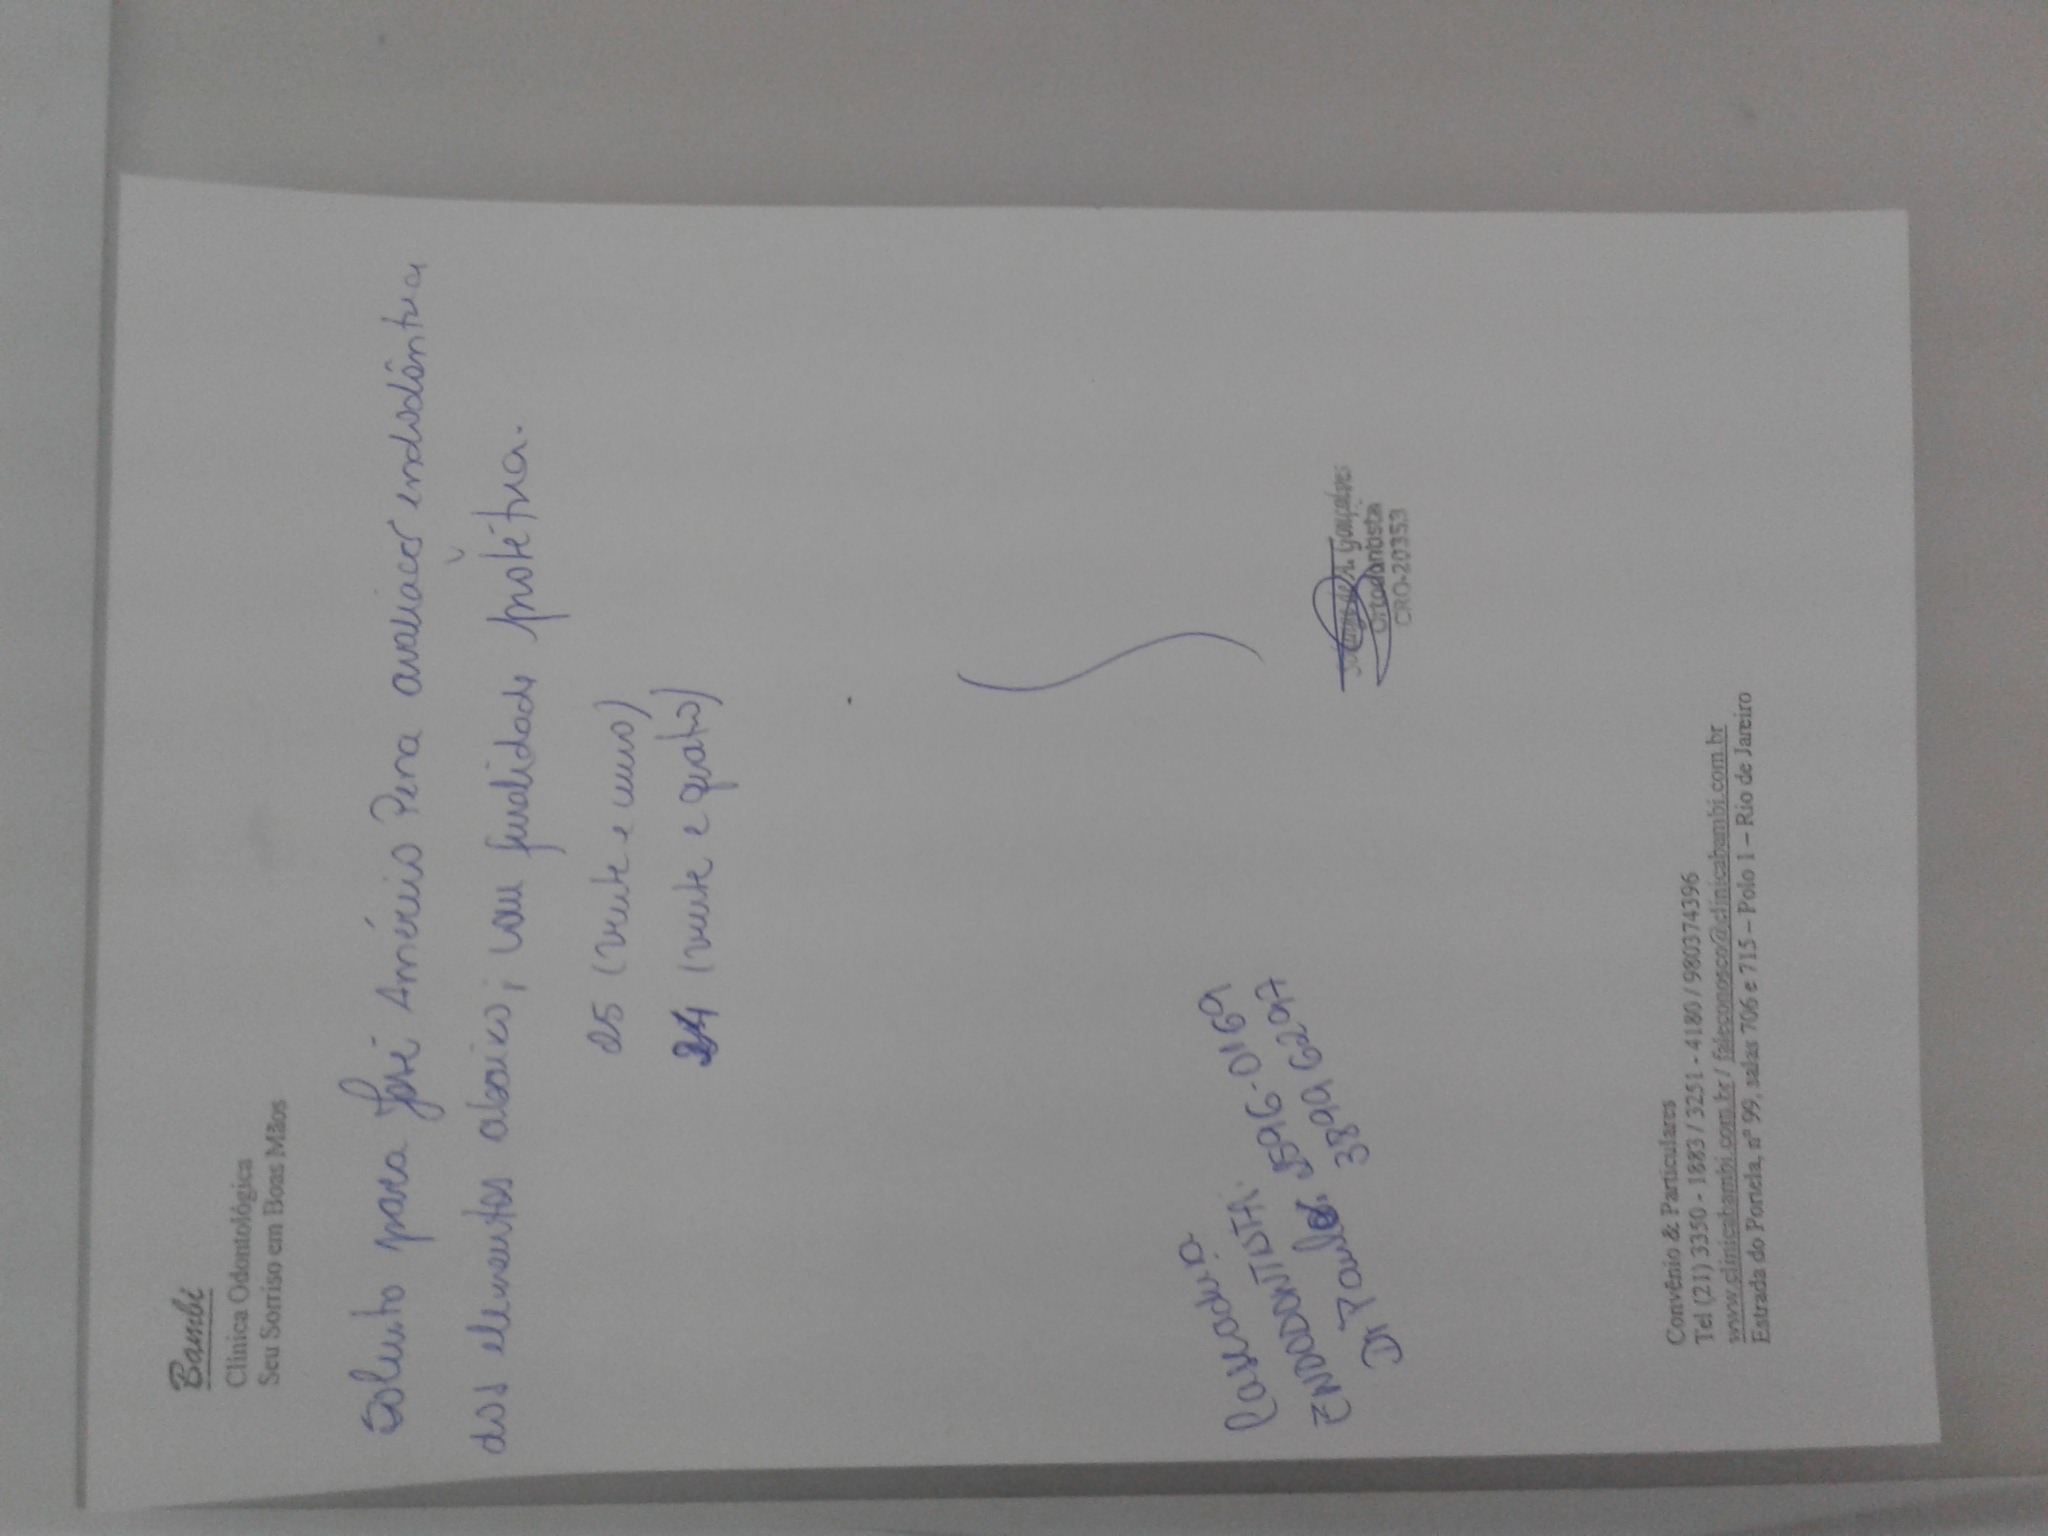 Bambi
Clinica Odontológica
Seu Sorriso em Boas Mãos
Solicito para José Américo Pena avaliação endodôntica
dos elementos abaixo, com finalidade protética.
25 (vinte e cinco)
24 (vinte e quatro)
Cascadura
ENDODONTISTA.
Dr Paulo. 2596-0169
3899 6297
Gonçalves
Ortodontista
CRO-20353
Convênio & Particulares
Tel (21) 3350 - 1883 / 3251 - 4180 / 980374396
www.clinicabambi.com.br / faleconosco@clinicabambi.com.br
Estrada do Portela, nº 99, salas 706 e 715 – Polo 1 – Rio de Janeiro